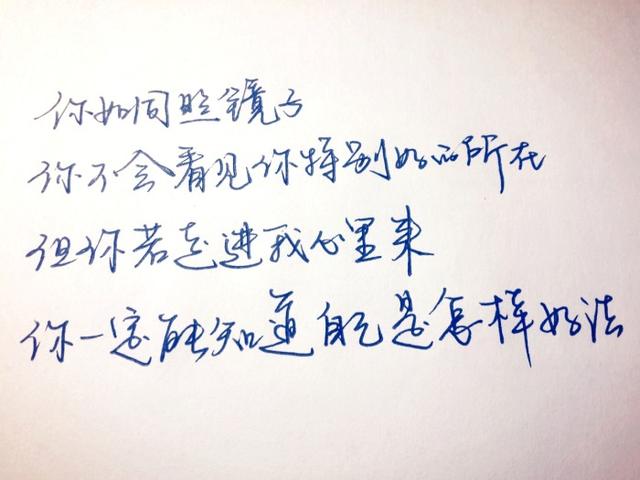 你如同照镜子
你不会看见你特别好的所在
但你若走进我心里来
你一定能知道自己是怎样好法